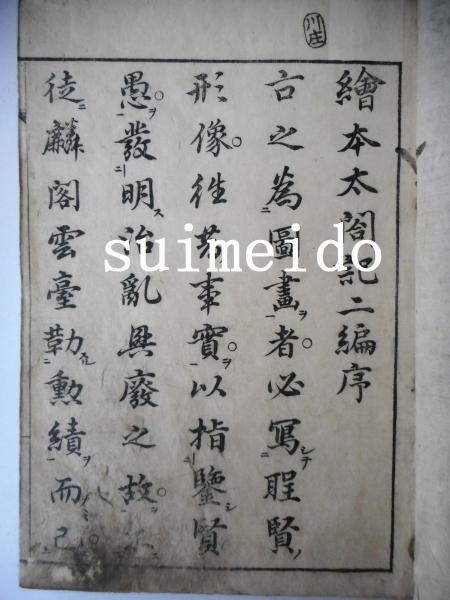 川庄
繪本太閤記二編序
古之為圖畫者必寫聖賢
形像往昔事實以指鑒賢
愚發明治亂興廢之故
徒麟閣雲臺勒勳績而已
suimeido